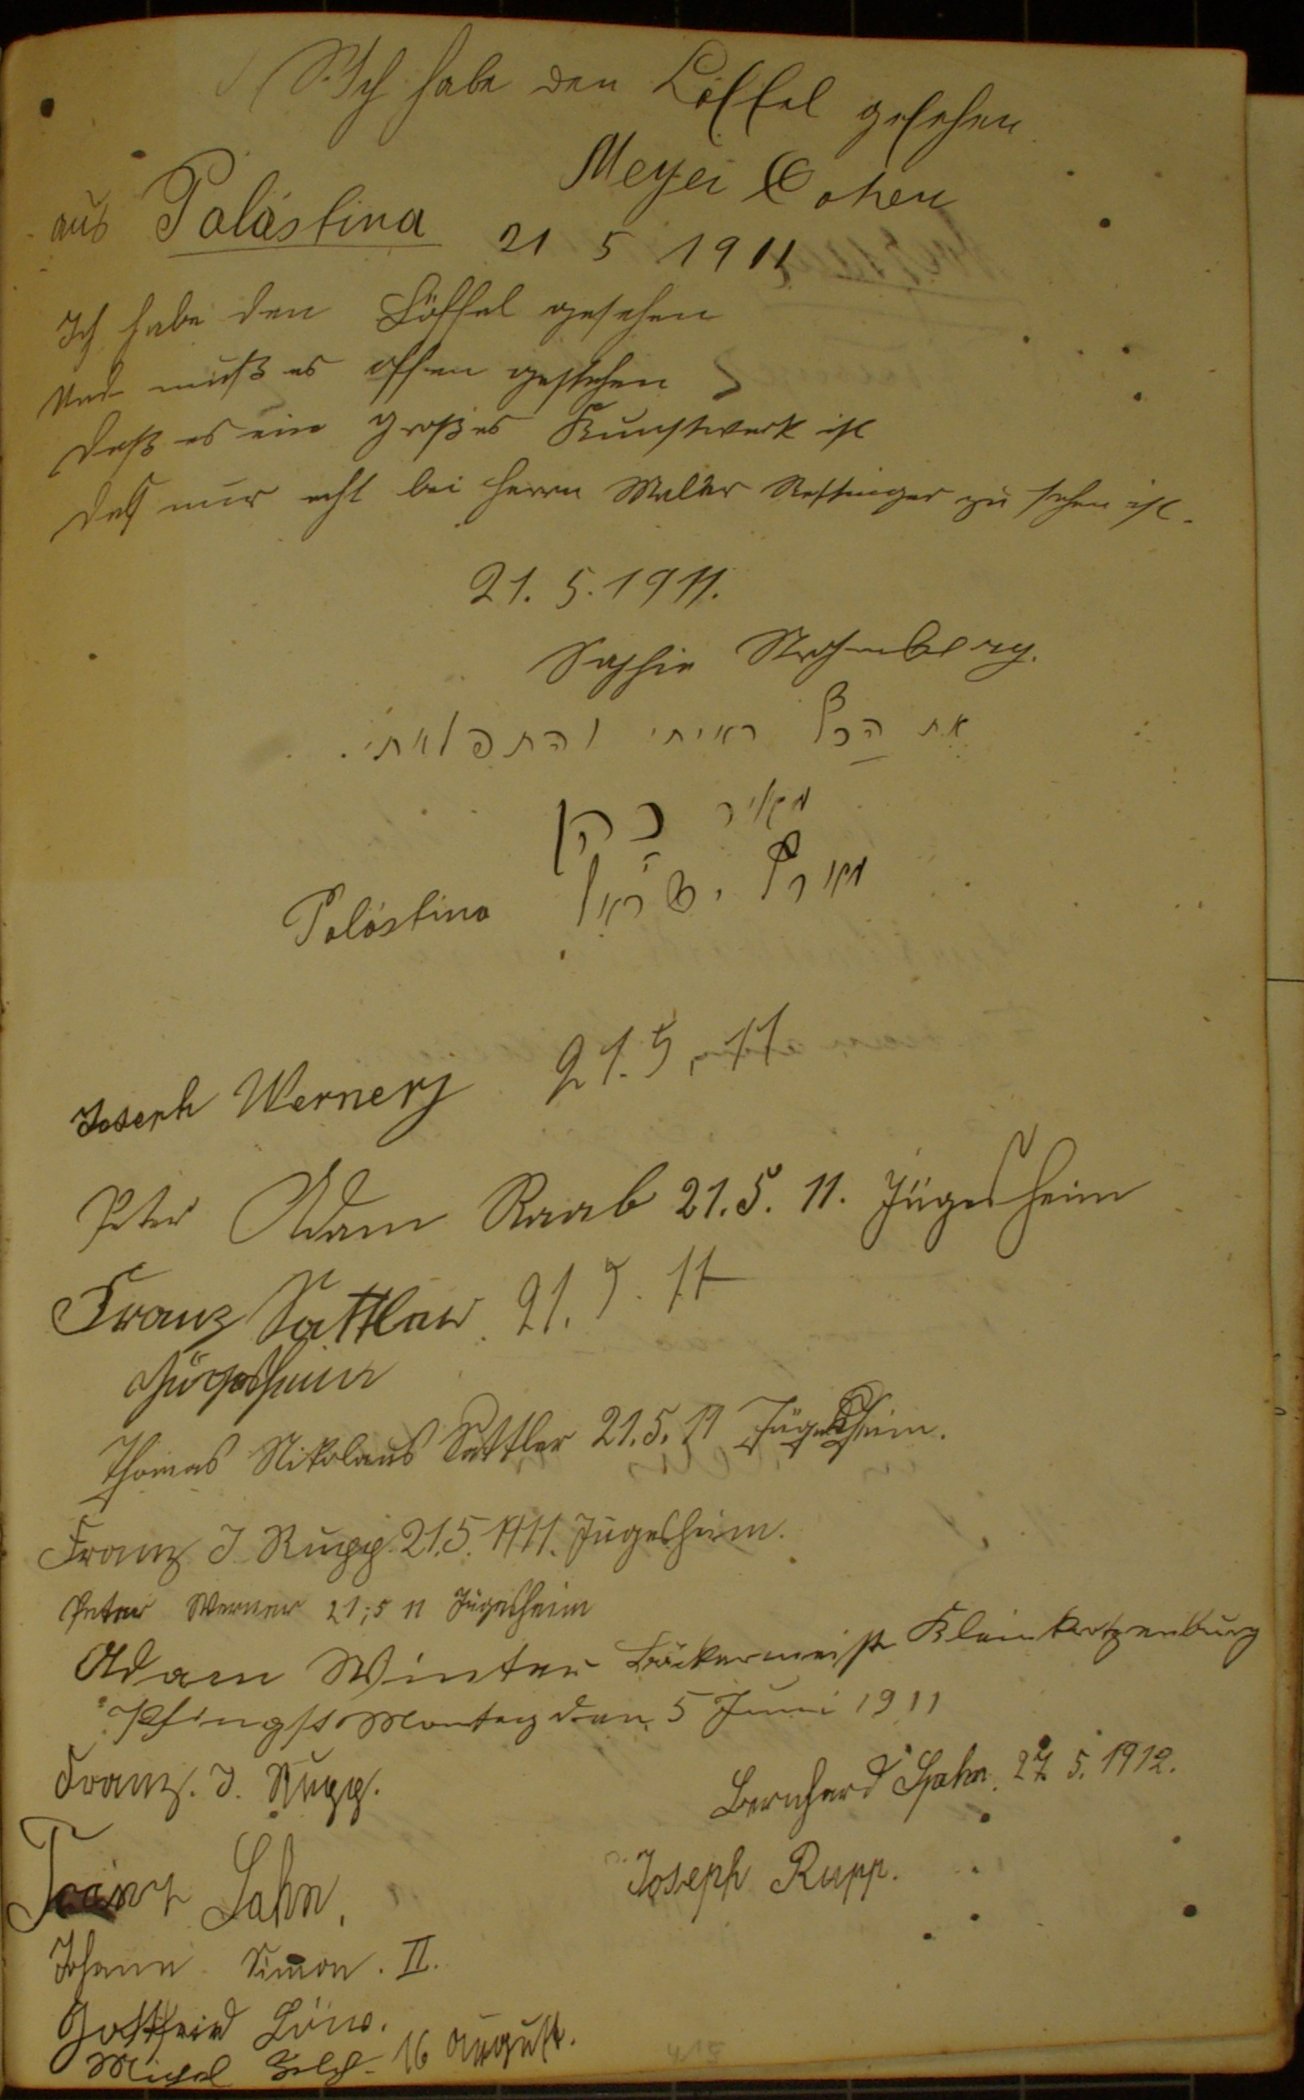 Ich habe den Löffel gesehen
Meyer Cohen
aus Palästina 21 5 1911
Ich habe den Löffel gesehen
Und muß es offen gestehen
daß es ein großes Kunstwerk ist
das nur echt bei Herrn Maler zu sehen ist.
21. 5. 1911.
Sophie
את הכף ראיתי והתפלאתי.
מאיר כהן
מארץ ישראל
Palästina
Joseph Werner 21. 5. 11
Peter Adam Raab 21. 5. 11. Jügesheim
Franz Sattler. 21. 5. 11
Jügesheim
Thomas Nikolaus Sattler 21. 5. 11 Jügesheim.
Franz J. Rupp. 21.5. 1911. Jügesheim.
Peter Werner 21;5 11 Jügesheim
Adam Winter Bäckermeister Kleinkrotzenburg
Pfingst Montag den 5 Juni 1911
Franz. J. Rupp.
Bernhard Spahn. 27. 5. 1912.
Franz Sahn.
Joseph Rupp.
Johann Simon. II.
Gottfried Löw.
Michel 16 August.